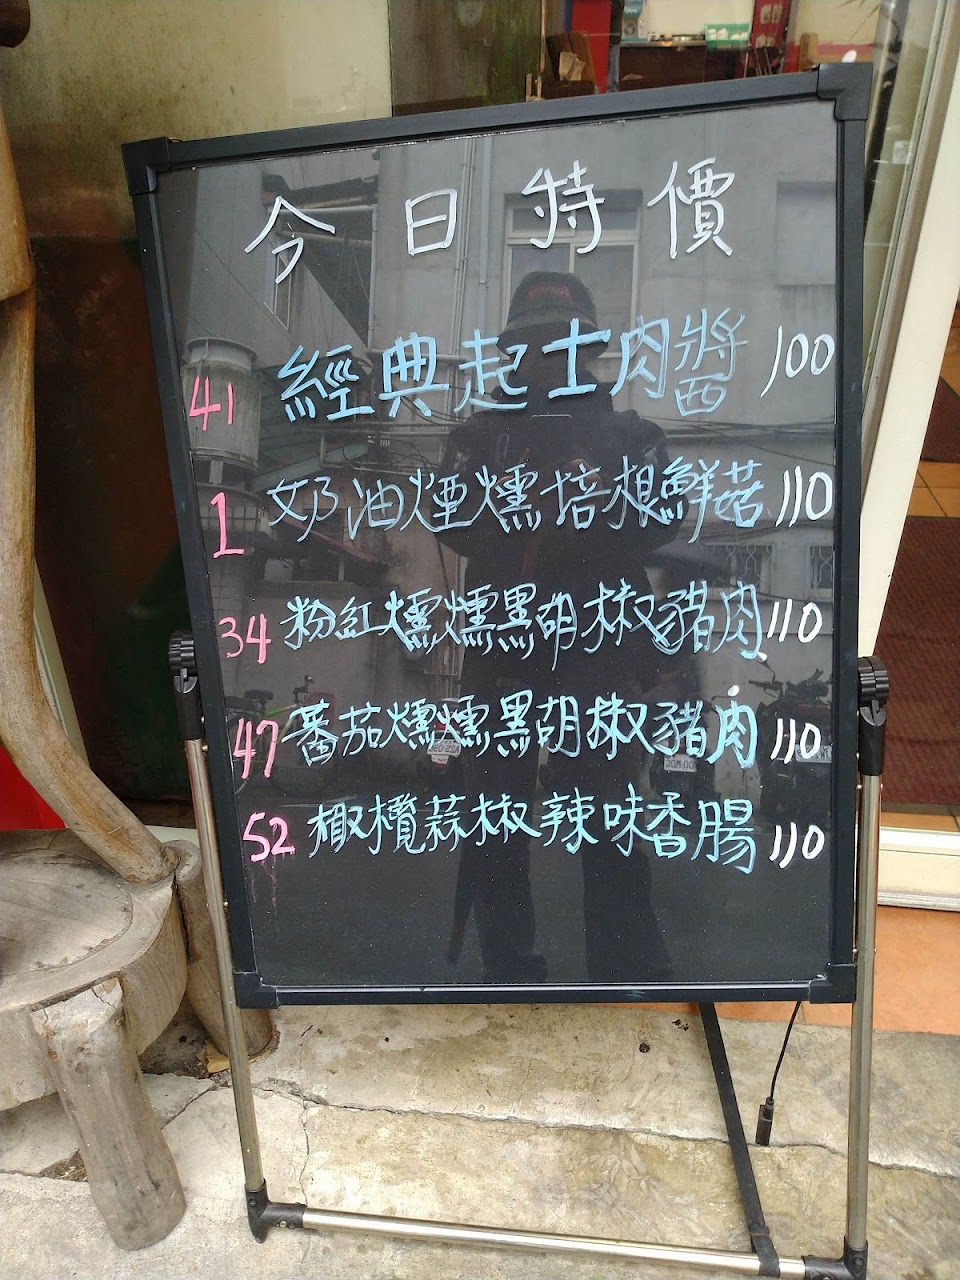 今日特價
41 經典起士肉醬 100
1 奶油煙燻培根鮮菇 110
34 粉紅燻燻黑胡椒豬肉 110
47 蕃茄燻燻黑胡椒豬肉 110
52 橄欖蒜椒辣味香腸 110